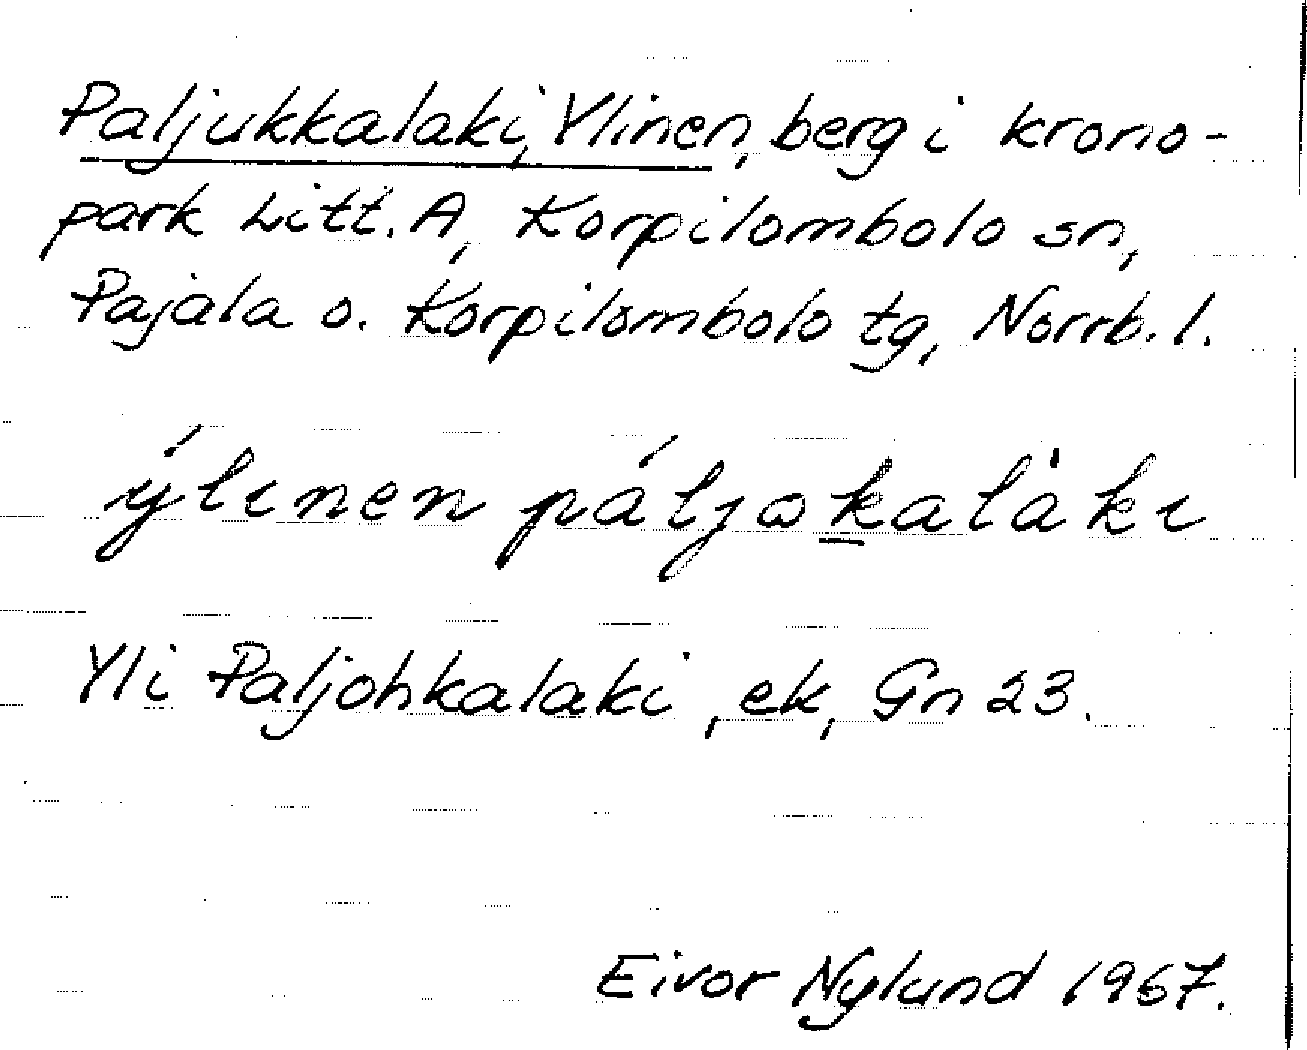 Paljukkalaki, Ylinen, berg i krono-
park Litt. A, Korpilombolo sn,
Pajala o. Korpilombolo tg, Norrb. l.
ýlınen páljωkalàkı
Yli Paljohkalaki, ek, Gn 23.
Eivor Nylund 1967.